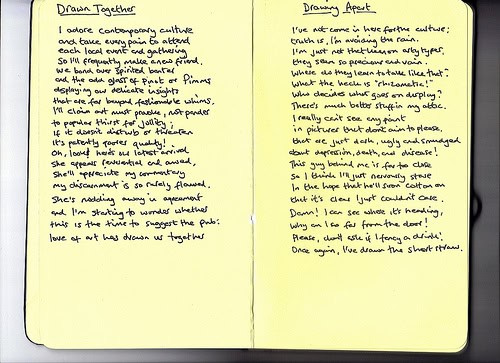 Drawn Together
I adore contemporary culture
and take every pain to attend
each local event and gathering
so I'll frequently make a new friend.
We bond over spirited banter
and the odd glass of Pinot or Pimms
displaying our delicate insights
that are far beyond fashionable whims.
I'll claim art must provoke, not pander
to popular thirst for jollity;
If it doesn't disturb or threaten
it's patently poorer quality!
Oh, look! here's our latest arrival
she appears reverential and awed,
She'll appreciate my commentary
my discernment is so rarely flawed.
She's nodding away in agreement
and I'm starting to wonder whether
this is the time to suggest the pub:
love of art has drawn us together
Drawing Apart
I've not come in here for the culture;
truth is, I'm avoiding the rain.
I'm just not that keen on arty types,
they seem so precious and vain.
Where do they learn to talk like that?
What the heck is "rhizomatic!"
Who decides what goes on display?
There's much better stuff in my attic.
I really can't see any point
in pictures that don't aim to please,
that are just dark, ugly and smudged
about depression, death, and disease!
This guy behind me is far too close
So I think I'll just nervously stare
In the hope that he'll soon cotton on
that it's clear I just couldn't care.
Damn! I can see where it's heading,
why am I so far from the door!
Please, don't ask if I fancy a drink!
Once again, I've drawn the short straw.